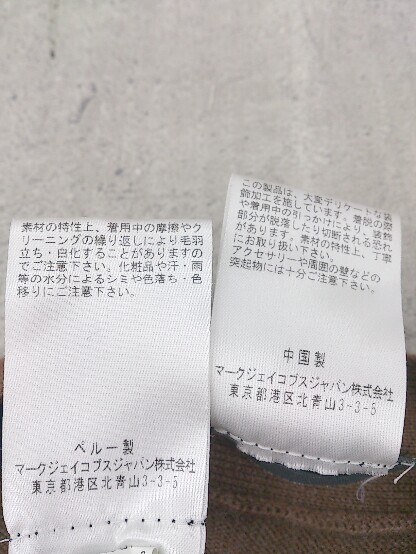 素材の特性上、着用中の摩擦やク
リーニングの繰り返しにより毛羽
立ち・白化することがありますの
でご注意下さい。化粧品や汗・雨
等の水分によるシミや色落ち・色
移りにご注意下さい。
ペルー製
マークジェイコブスジャパン株式会社
東京都港区北青山3-3-5
この製品は、大変デリケートな装
飾加工を施しています。着脱の際
や着用中の引っかけにより、装飾
部分が脱落したり切断される恐れ
があります。素材の特性上、丁寧
にお取り扱い下さい。
アクセサリーや周囲の壁などの
突起物には十分ご注意下さい。
中国製
マークジェイコブスジャパン株式会社
東京都港区北青山3-3-5